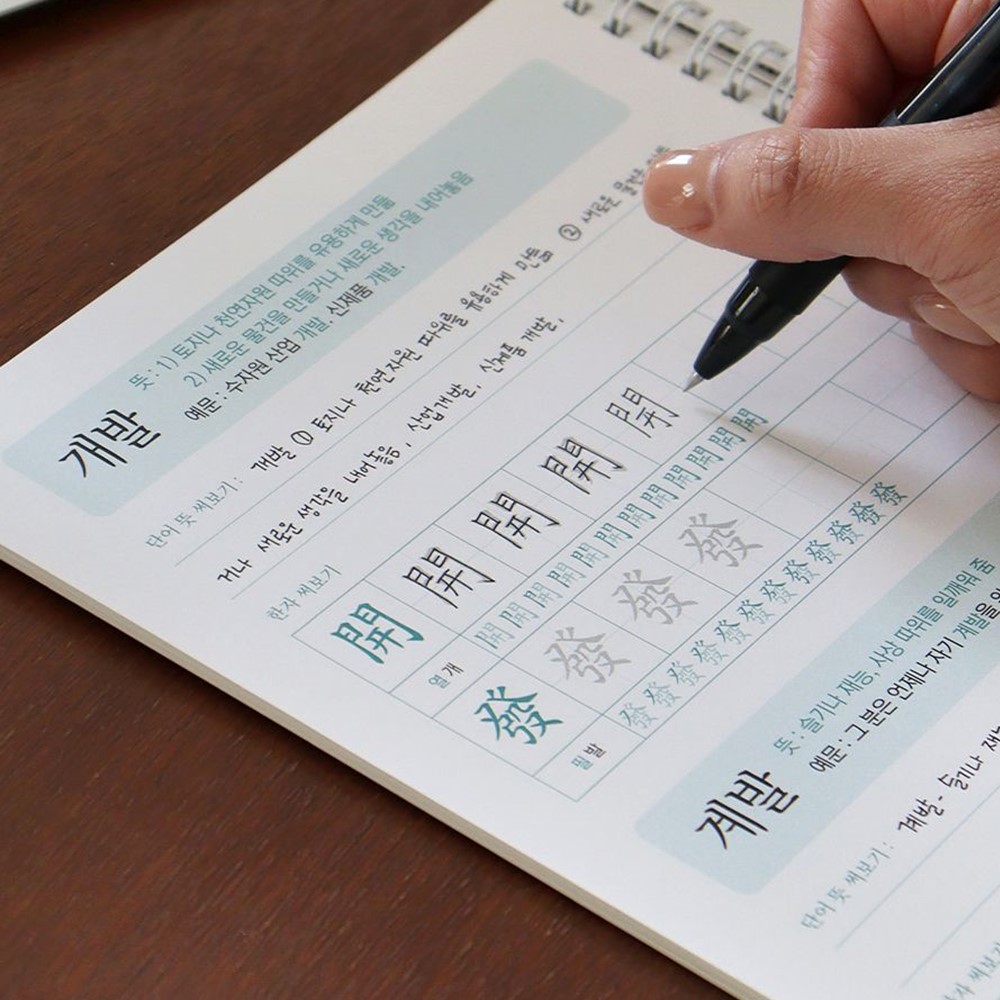 개발
뜻 : 1) 토지나 천연자원 따위를 유용하게 만듦
2) 새로운 물건을 만들거나 새로운 생각을 내어놓음
예문 : 수자원 산업 개발, 신제품 개발.
단어 뜻 써보기 : 개발 ① 토지나 천연자원 따위를 유용하게 만듦 ② 새로운 물건을
거나 새로운 생각을 내어놓음, 산업개발, 신제품 개발.
한자 써보기
開 開 開 開 開
열 개 開 開 開 開 開 開 開 開 開 開 開
發 發 發 發
필 발 發 發 發 發 發 發 發 發 發 發 發
계발
뜻 : 슬기나 재능, 사상 따위를 일깨워 줌
예문 : 그 분은 언제나 자기 계발을
단어 뜻 써보기 : 계발 - 슬기나
한자 써보기